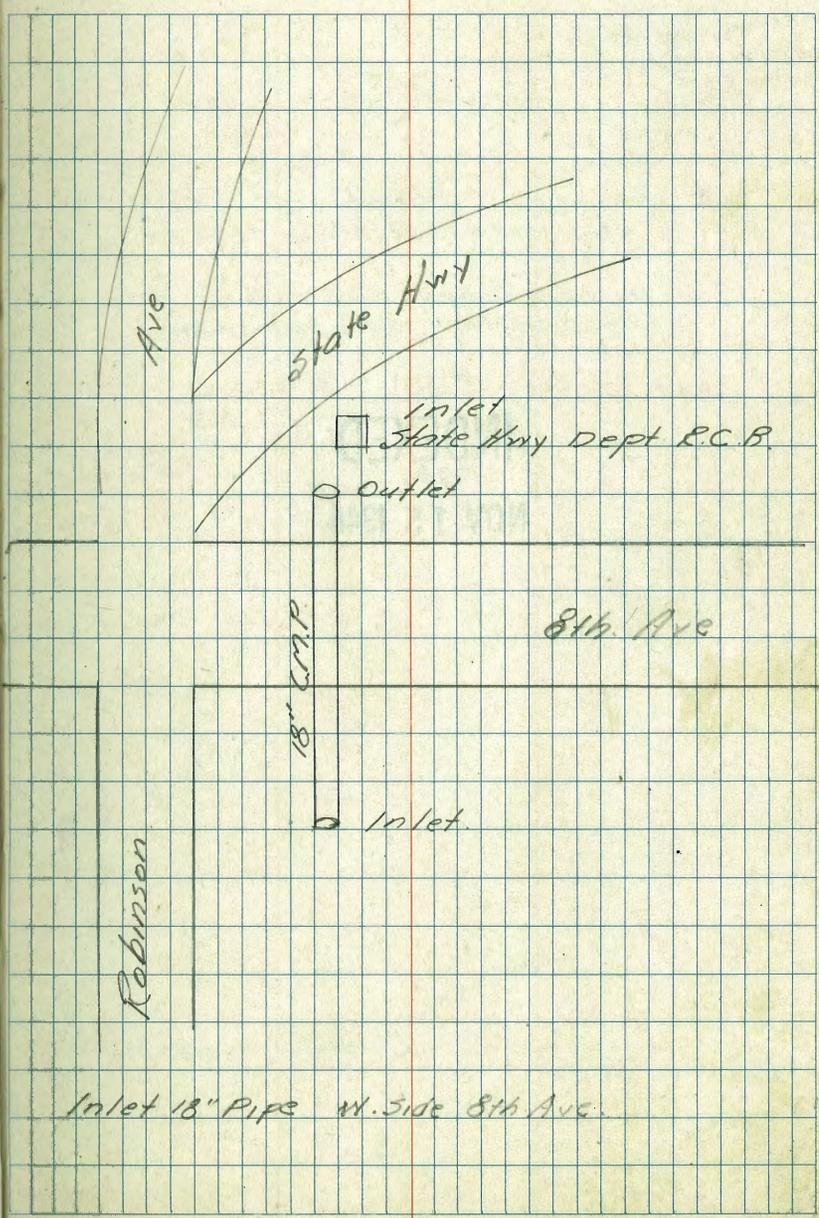 Ave
State Hwy
Inlet
State Hwy Dept R.C.B.
Outlet
8th Ave
18" C.M.P.
Inlet.
Robinson
Inlet 18" Pipe W. Side 8th Ave.